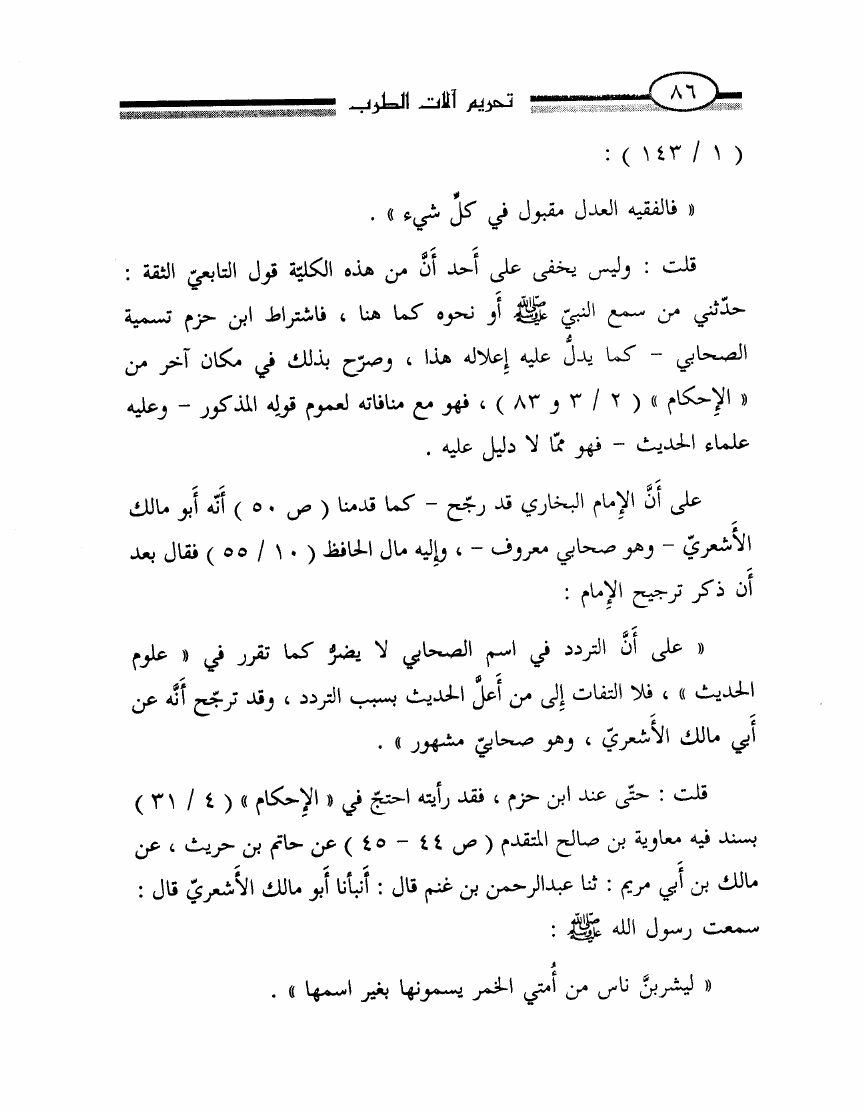 ٨٦
تحريم آلات الطرب
( ١ / ١٤٣ ) :
« فالفقيه العدل مقبول في كلِّ شيء » .
قلت : وليس يخفى على أَحد أَنَّ من هذه الكليّة قول التابعيّ الثقة :
حدّثني من سمع النبيّ ﷺ أَو نحوه كما هنا ، فاشتراط ابن حزم تسمية
الصحابي – كما يدلُّ عليه إعلاله هذا ، وصرّح بذلك في مكان آخر من
« الإحكام » ( ٢ / ٣ و ٨٣ ) ، فهو مع منافاته لعموم قوله المذكور – وعليه
علماء الحديث – فهو ممّا لا دليل عليه .
على أَنَّ الإمام البخاري قد رجّح – كما قدمنا ( ص ٥٠ ) أَنّه أَبو مالك
الأَشعريّ – وهو صحابي معروف – ، وإليه مال الحافظ ( ١٠ / ٥٥ ) فقال بعد
أَن ذكر ترجيح الإمام :
« على أَنَّ التردد في اسم الصحابي لا يضرُّ كما تقرر في « علوم
الحديث » ، فلا التفات إلى من أَعلَّ الحديث بسبب التردد ، وقد ترجّح أَنَّه عن
أَبي مالك الأَشعريّ ، وهو صحابيّ مشهور » .
قلت : حتّى عند ابن حزم ، فقد رأيته احتجّ في « الإحكام » ( ٤ / ٣١ )
بسند فيه معاوية بن صالح المتقدم ( ص ٤٤ – ٤٥ ) عن حاتم بن حريث ، عن
مالك بن أَبي مريم : ثنا عبدالرحمن بن غنم قال : أَنبأنا أَبو مالك الأَشعريّ قال :
سمعت رسول الله ﷺ :
« ليشربنَّ ناس من أُمتي الخمر يسمونها بغير اسمها » .